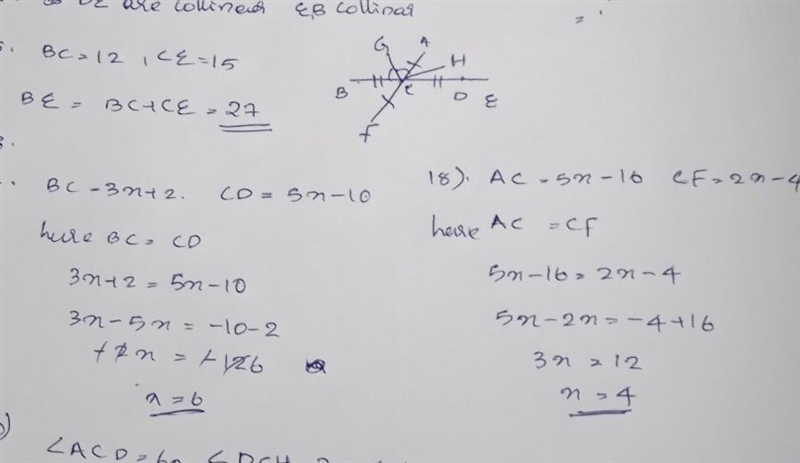 DE are collinear E,B collinar
BC = 12, CE = 15
BE = BC+CE = 27
G A H B C D E F
BC = 3n+2. CD = 5n-10
here BC = CD
3n+2 = 5n-10
3n-5n = -10-2
n = 6
18). AC = 5n-16 CF = 2n-4
here AC = CF
5n-16 = 2n-4
5n-2n = -4+16
3n = 12
n = 4
∠ACD = 6n ∠DCH